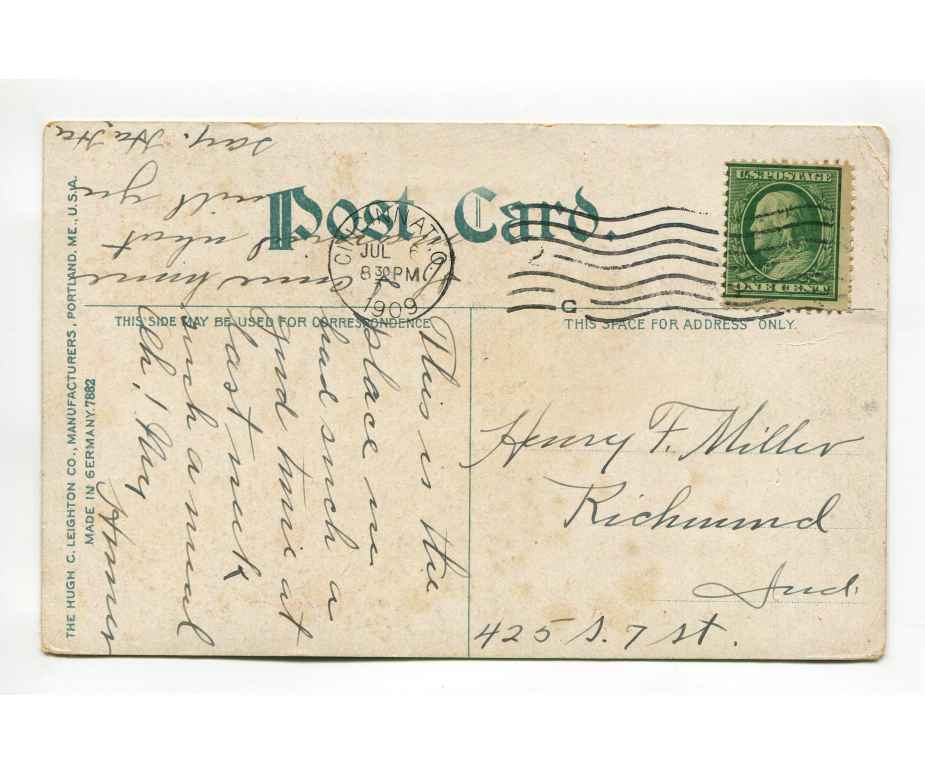 Post Card.
U.S. POSTAGE
ONE CENT
CINCINNATI, O.
JUL 6
8 30 PM
1909
C
THIS SIDE MAY BE USED FOR CORRESPONDENCE
THIS SPACE FOR ADDRESS ONLY.
THE HUGH C. LEIGHTON CO., MANUFACTURERS, PORTLAND, ME., U.S.A.
MADE IN GERMANY. 7882
This is the
place we
had such a
good time at
last week
such a meal
Oh! They
Homer
come home
what
will you
say. Ha, Ha
Henry F. Miller
Richmond
Ind.
425 S. 7 st.